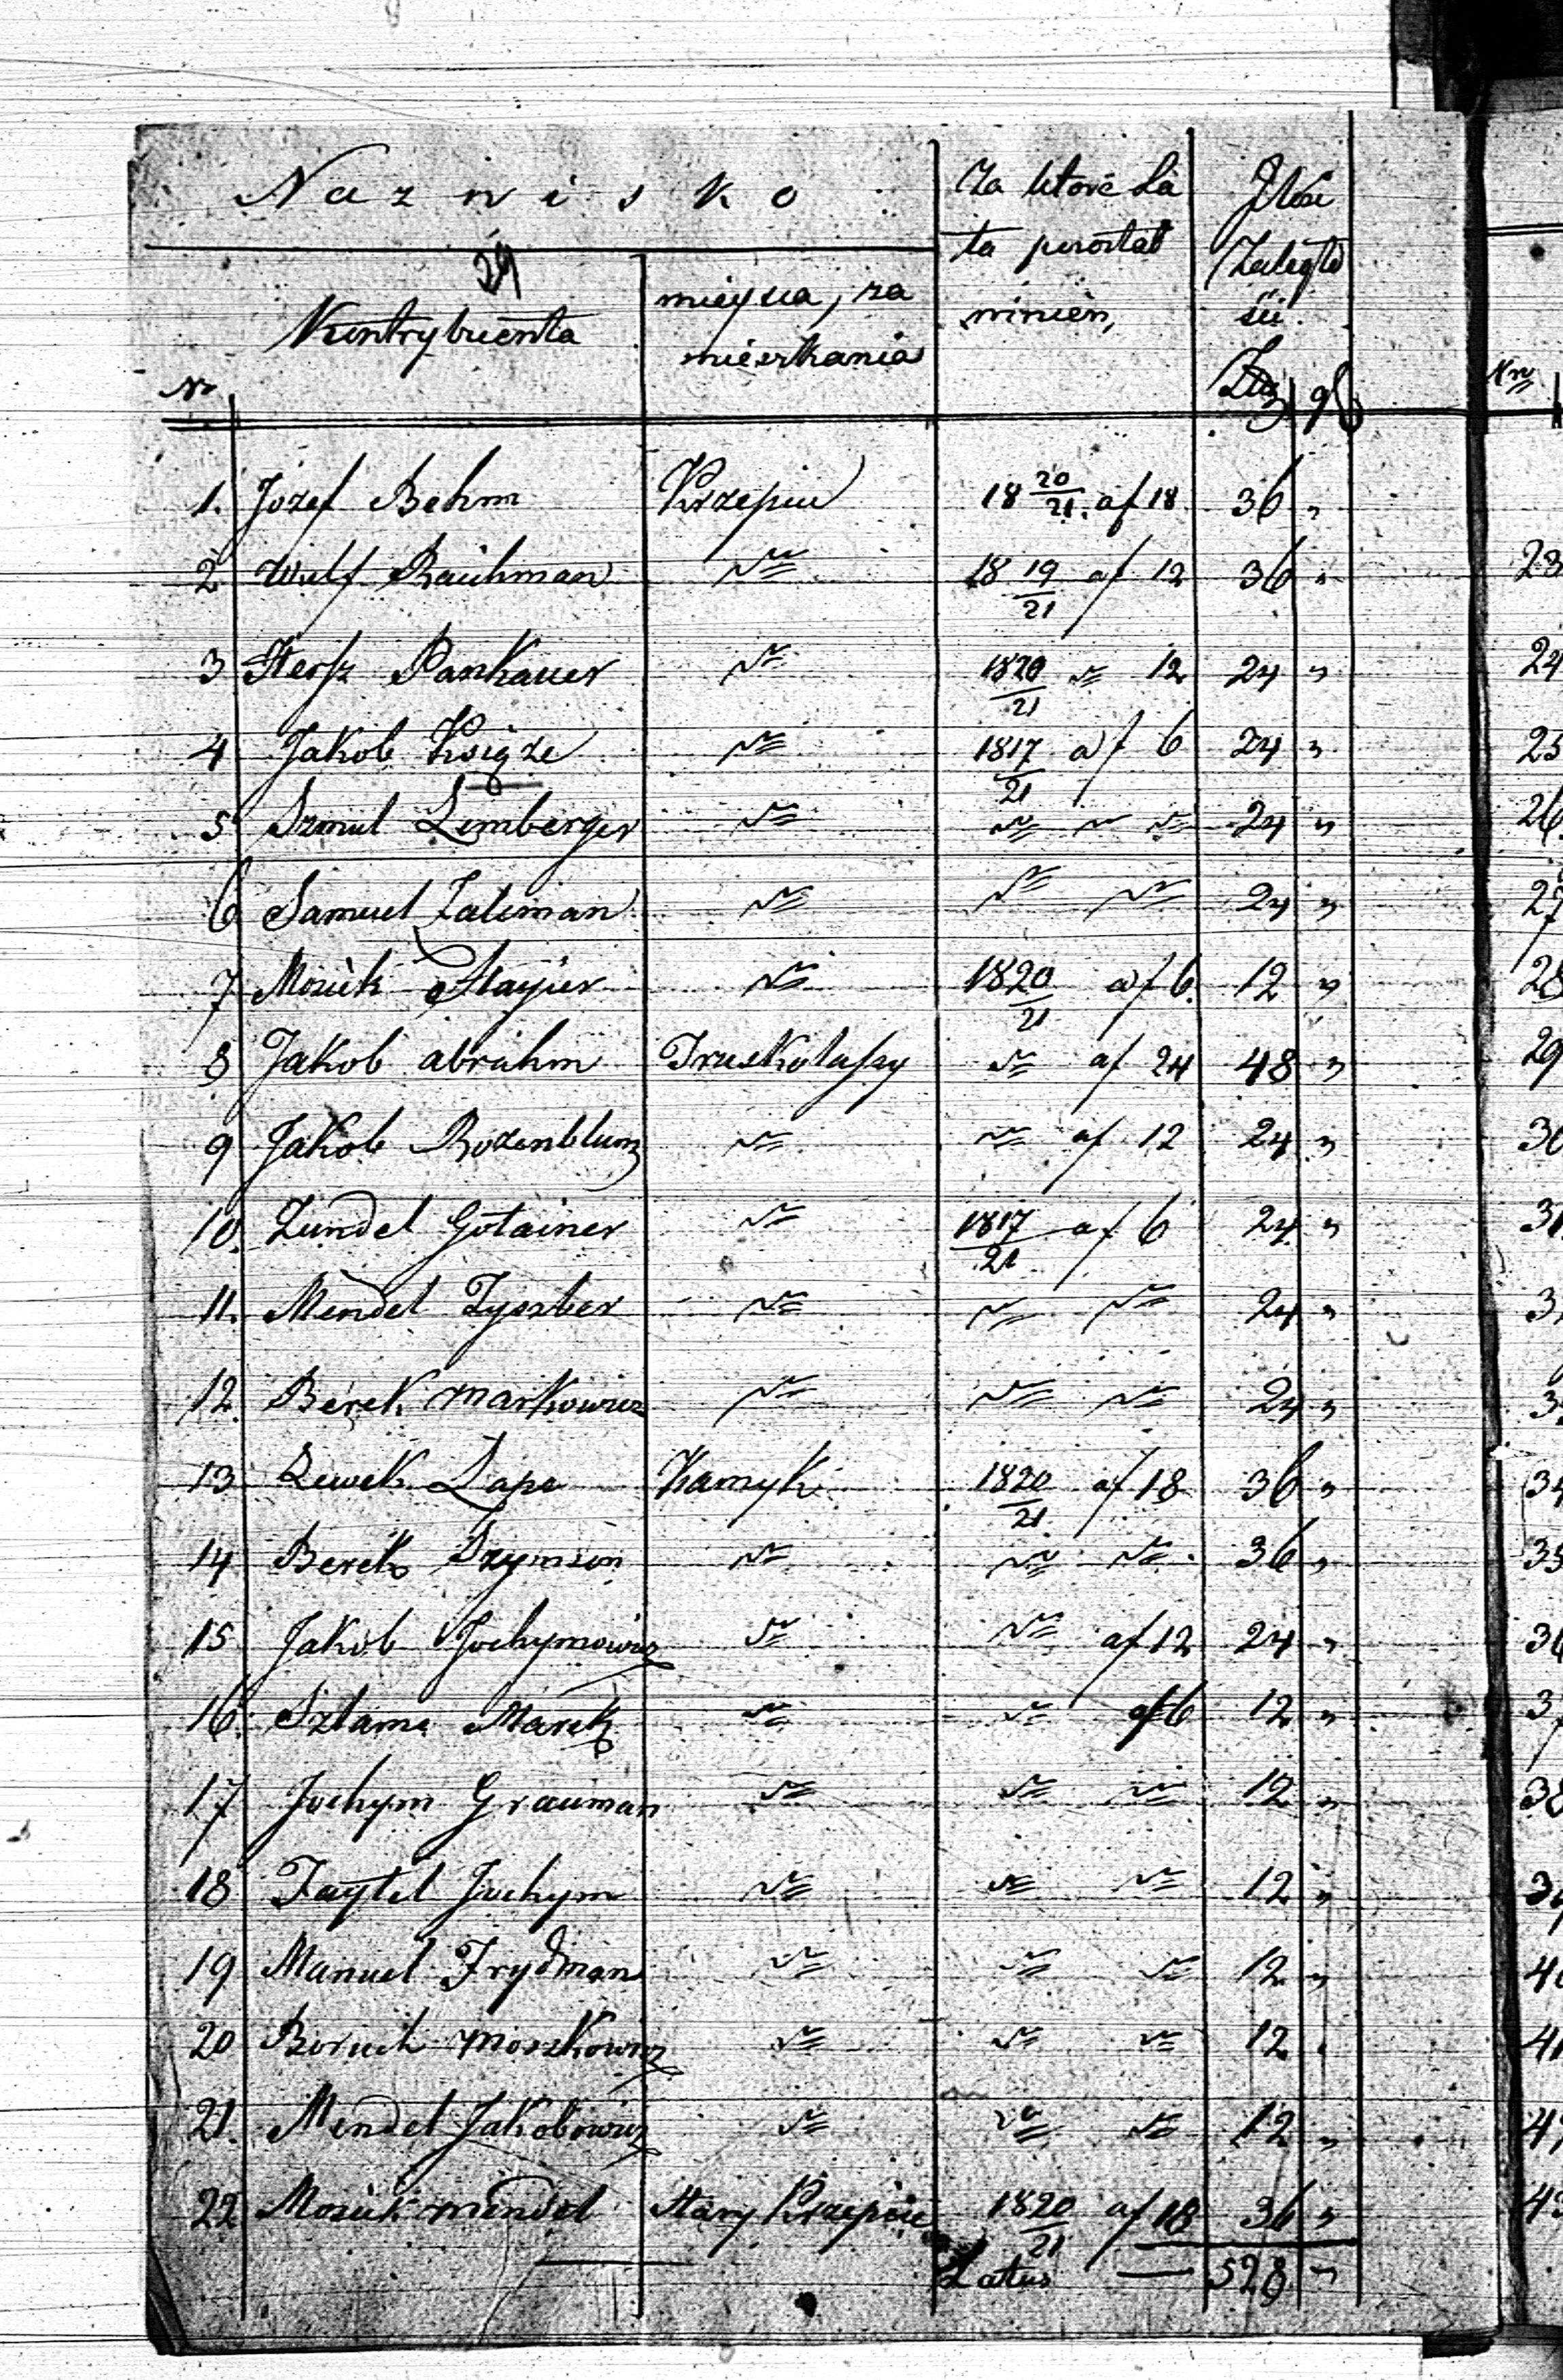 Nazwisko
Kontrybuenta
mieysca, za
mieszkania
Za które La
ta pozostał
winien,
Jlość
Zaległo
ści
No
Złł gſ
1. Jozef Behm Krzepice 18 20/21. af 18 36 "
2 Wulf Raichman 18 19/21 af 12 36 "
3 Hersz Pankauer 1820/21 12 24 "
4 Jakob Książe 1817/21 af 6 24 "
5 Szmul Lemberger 24 "
6 Samuel Zaliman 24 "
7 Mosiek Stayier 1820/21 af 6. 12 "
8 Jakob abrahm Truskolasy af 24 48 "
9 Jakob Rozenblum af 12 24 "
10. Zundel Gotainer 1817/21 af 6 24 "
11. Mendel Tyszber 24 "
12. Berek Markowicz 24 "
13 Lewek Lapa Kamyk 1820/21 af 18 36 "
14 Berek Szymson 36 "
15 Jakob Jochymowicz af 12 24 "
16. Szlama Marek af 6 12 "
17 Jochym Grauman 12 "
18 Faytel Jochym 12 "
19 Manuel Frydman 12 "
20 Boruch Moszkowicz 12 "
21. Mendel Jakobowicz 12 "
22 Mosiek Mendel Stary Krzepice 1820/21 af 18 36 "
Latus — 528 "
Nro
23
24
25
26.
27
28
29
30
31.